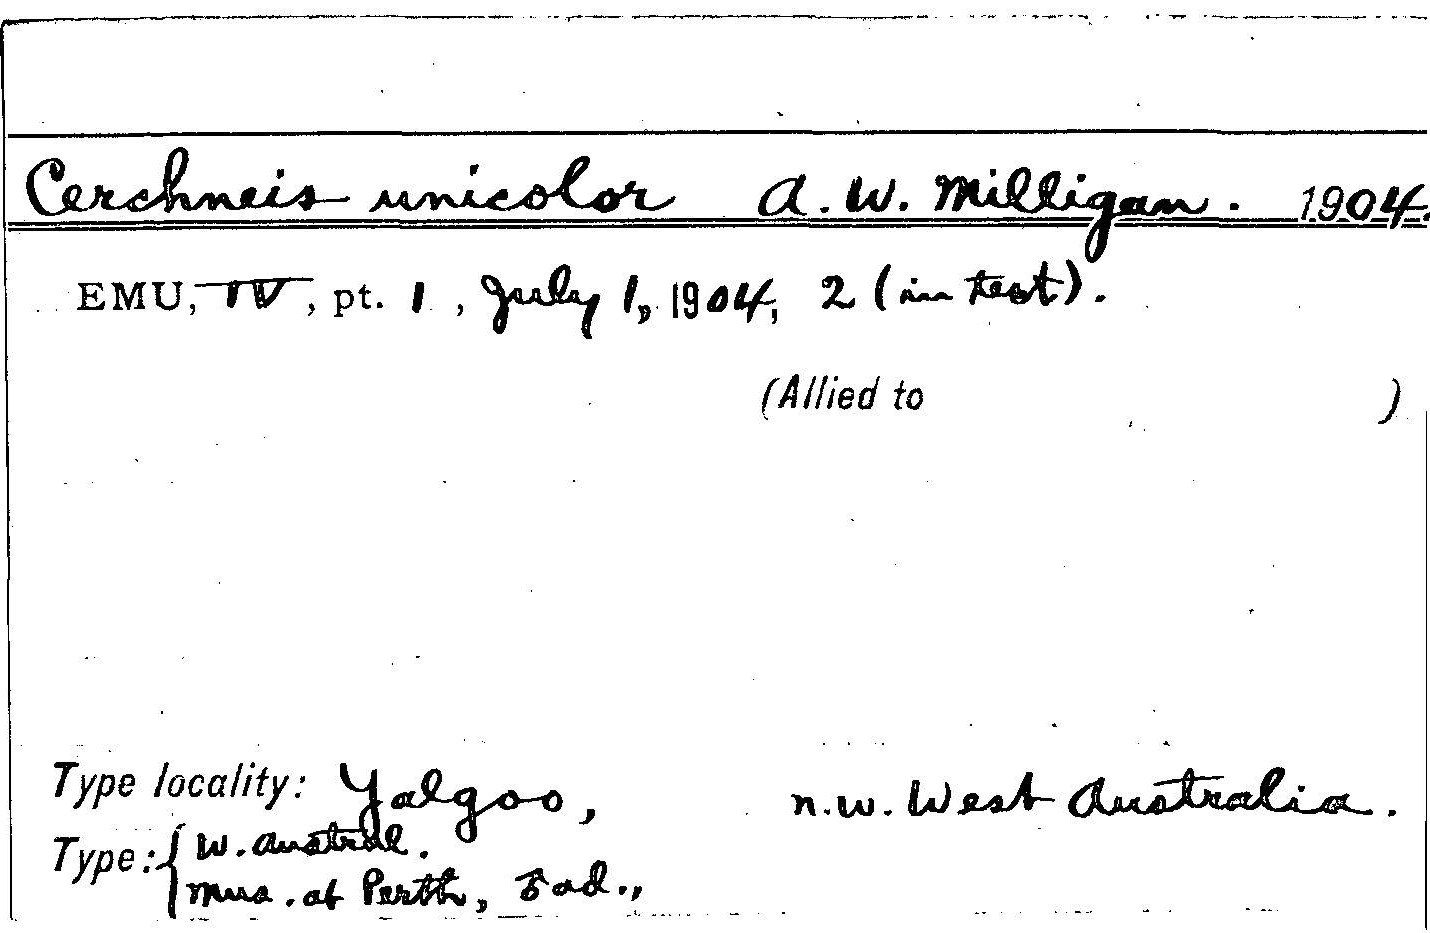 Cerchneis unicolor A. W. Milligan. 1904.
EMU, IV, pt. 1, July 1, 1904, 2 (in text).
(Allied to )
Type locality: Yalgoo, n.w. West Australia.
Type: { W. Austral.
Mus. at Perth, ad.,